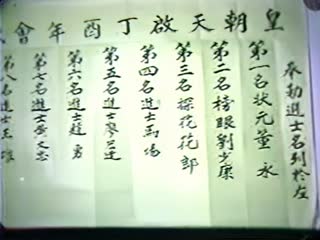 皇朝天啟丁酉年會
奉勅進士名列於左
第一名狀元董永
第二名榜眼劉少康
第三名探花花郎
第四名進士馬
第五名進士廖
第六名進士趙勇
第七名進士黃文忠
第八名進士王雄